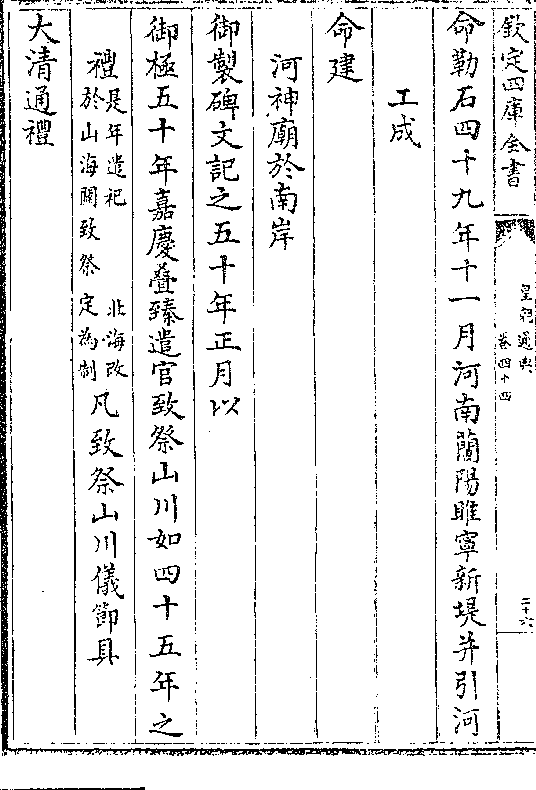 欽定四庫全書
皇朝通典
卷四十四
二十六
命勒石四十九年十一月河南蘭陽睢寧新堤并引河
工成
命建
河神廟於南岸
御製碑文記之五十年正月以
御極五十年嘉慶疊臻遣官致祭山川如四十五年之
禮是年遣祀北海改於山海關致祭定為制凡致祭山川儀節具
大清通禮